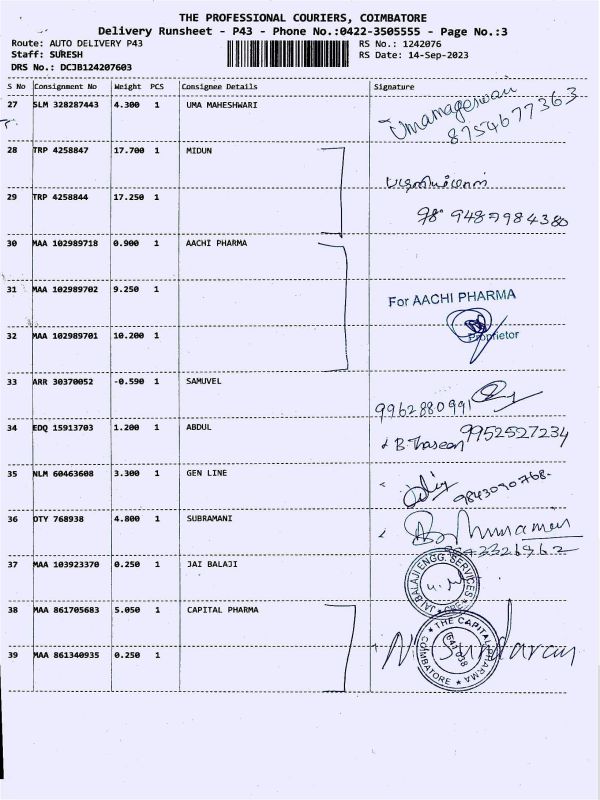 THE PROFESSIONAL COURIERS, COIMBATORE
Delivery Runsheet - P43 - Phone No.:0422-3505555 - Page No.:3
Route: AUTO DELIVERY P43 RS No.: 1242076
Staff: SURESH RS Date: 14-Sep-2023
DRS No.: DCJB124207603
S No Consignment No Weight PCS Consignee Details Signature
27 SLM 328287443 4.300 1 UMA MAHESHWARI Umamageswari
8754677363
28 TRP 4258847 17.700 1 MIDUN
29 TRP 4258844 17.250 1 9487984380
30 MAA 102989718 0.900 1 AACHI PHARMA
31 MAA 102989702 9.250 1 For AACHI PHARMA
32 MAA 102989701 10.200 1 Proprietor
33 ARR 30370052 -0.590 1 SAMUVEL 9962880991
34 EDQ 15913703 1.200 1 ABDUL 9952527234
35 NLM 60463608 3.300 1 GEN LINE 9843090768
36 OTY 768938 4.800 1 SUBRAMANI
37 MAA 103923370 0.250 1 JAI BALAJI JAI BALAJI ENGG. SERVICES
38 MAA 861705683 5.050 1 CAPITAL PHARMA THE CAPITAL PHARMA
COIMBATORE
39 MAA 861340935 0.250 1 N. Sundaran